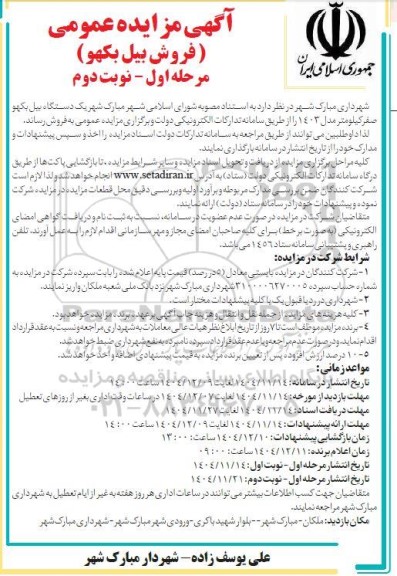 آگهی مزایده عمومی
( فروش بیل بکهو)
مرحله اول - نوبت دوم
جمهوری اسلامی ایران
شهرداری مبارک شهر در نظر دارد به استناد مصوبه شورای اسلامی شهر مبارک شهر یک دستگاه بیل بکهو
صفر کیلومتر مدل ۱۴۰۳ را از طریق سامانه تدارکات الکترونیکی دولت و برگزاری مزایده عمومی به فروش رساند.
لذا داوطلبین می توانند از طریق مراجعه به سامانه تدارکات دولت اسناد مزایده را اخذ و سپس پیشنهادات و
مدارک خود را از تاریخ انتشار در سامانه بارگذاری نمایند.
کلیه مراحل برگزاری مزایده از دریافت و تحویل اسناد مزایده و سایر شرایط مزایده، تا بازگشایی پاکت‌ها از طریق
درگاه سامانه تدارکات الکترونیکی دولت (ستاد) به آدرس www.setadiran.ir انجام خواهد شد ولذا لازم است
شرکت کنندگان ضمن بررسی مدارک مربوطه و برآورد اولیه و بررسی دقیق محل قطعات مزایده در مزایده، شرکت
نموده و پیشنهادات خود را در سامانه ستاد (دولت) ارائه نمایند.
متقاضیان شرکت در مزایده در صورت عدم عضویت در سامانه، نسبت به ثبت نام و دریافت گواهی امضای
الکترونیکی (به صورت برخط) برای کلیه صاحبان امضای مجاز و مهر سازمانی اقدام لازم را به عمل آورند. تلفن
راهبری و پشتیبانی سامانه ستاد ۱۴۵۶ می باشد.
شرایط شرکت در مزایده:
۱- شرکت کنندگان در مزایده بایستی معادل (۵ درصد) قیمت پایه اعلام شده را بابت سپرده شرکت در مزایده به
شماره حساب سپرده شهرداری مبارک شهر نزد بانک ملی شعبه ملکان واریز نمایند.
۲- شهرداری در رد یا قبول یک یا کلیه پیشنهادات مختار است.
۳- کلیه هزینه های مزایده از جمله نقل و انتقال و هزینه چاپ آگهی بر عهده برنده مزایده خواهد بود.
۴- برنده مزایده موظف است تا ۷ روز از تاریخ ابلاغ نظر هیات عالی معاملات به شهرداری مراجعه و نسبت به عقد قرارداد
اقدام نماید و در صورت عدم مراجعه و یا عدم عقد قرارداد سپرده نامبرده به نفع شهرداری ضبط خواهد شد.
۵- ۱۰ درصد ارزش افزوده پس از تعیین برنده مزایده به قیمت پیشنهادی اضافه و اخذ خواهد شد.
مواعد زمانی:
تاریخ انتشار در سامانه: ۱۴۰۴/۱۱/۱۴ لغایت ۱۴۰۴/۱۲/۰۹ ساعت ۱۴:۰۰
مهلت بازدید از مورخه: ۱۴۰۴/۱۱/۱۴ لغایت ۱۴۰۴/۱۲/۰۷ در ساعات وقت اداری بغیر از روزهای تعطیل
مهلت دریافت اسناد: لغایت ۱۴۰۴/۱۱/۲۷
مهلت ارائه پیشنهادات: ۱۴۰۴/۱۱/۱۴ لغایت ۱۴۰۴/۱۲/۰۹ ساعت ۱۴:۰۰
زمان بازگشایی پیشنهادات: ۱۴۰۴/۱۲/۱۰ ساعت ۱۳:۰۰
زمان اعلام برنده: ۱۴۰۴/۱۲/۱۱ ساعت ۰۹:۰۰
تاریخ انتشار مرحله اول - نوبت اول: ۱۴۰۴/۱۱/۱۴
تاریخ انتشار مرحله اول - نوبت دوم: ۱۴۰۴/۱۱/۲۱
متقاضیان جهت کسب اطلاعات بیشتر می توانند در ساعات اداری هر روز هفته به غیر از ایام تعطیل به شهرداری
مبارک شهر مراجعه نمایند.
مکان بازدید: ملکان-مبارک شهر--بلوار شهید باکری-ورودی شهر مبارک شهر-شهرداری مبارک شهر
علی یوسف زاده - شهردار مبارک شهر